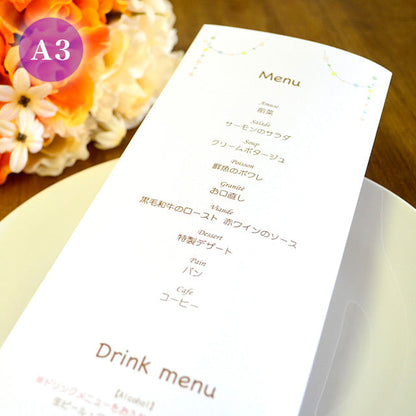 A3
Menu
Amuse
前菜
Salade
サーモンのサラダ
Soup
クリームポタージュ
Poisson
鮮魚のポワレ
Granité
お口直し
Viande
黒毛和牛のロースト 赤ワインのソース
Dessert
特製デザート
Pain
パン
Cafe
コーヒー
Drink menu
※ドリンクメニューをお入
【Alcohol】
生ビール・